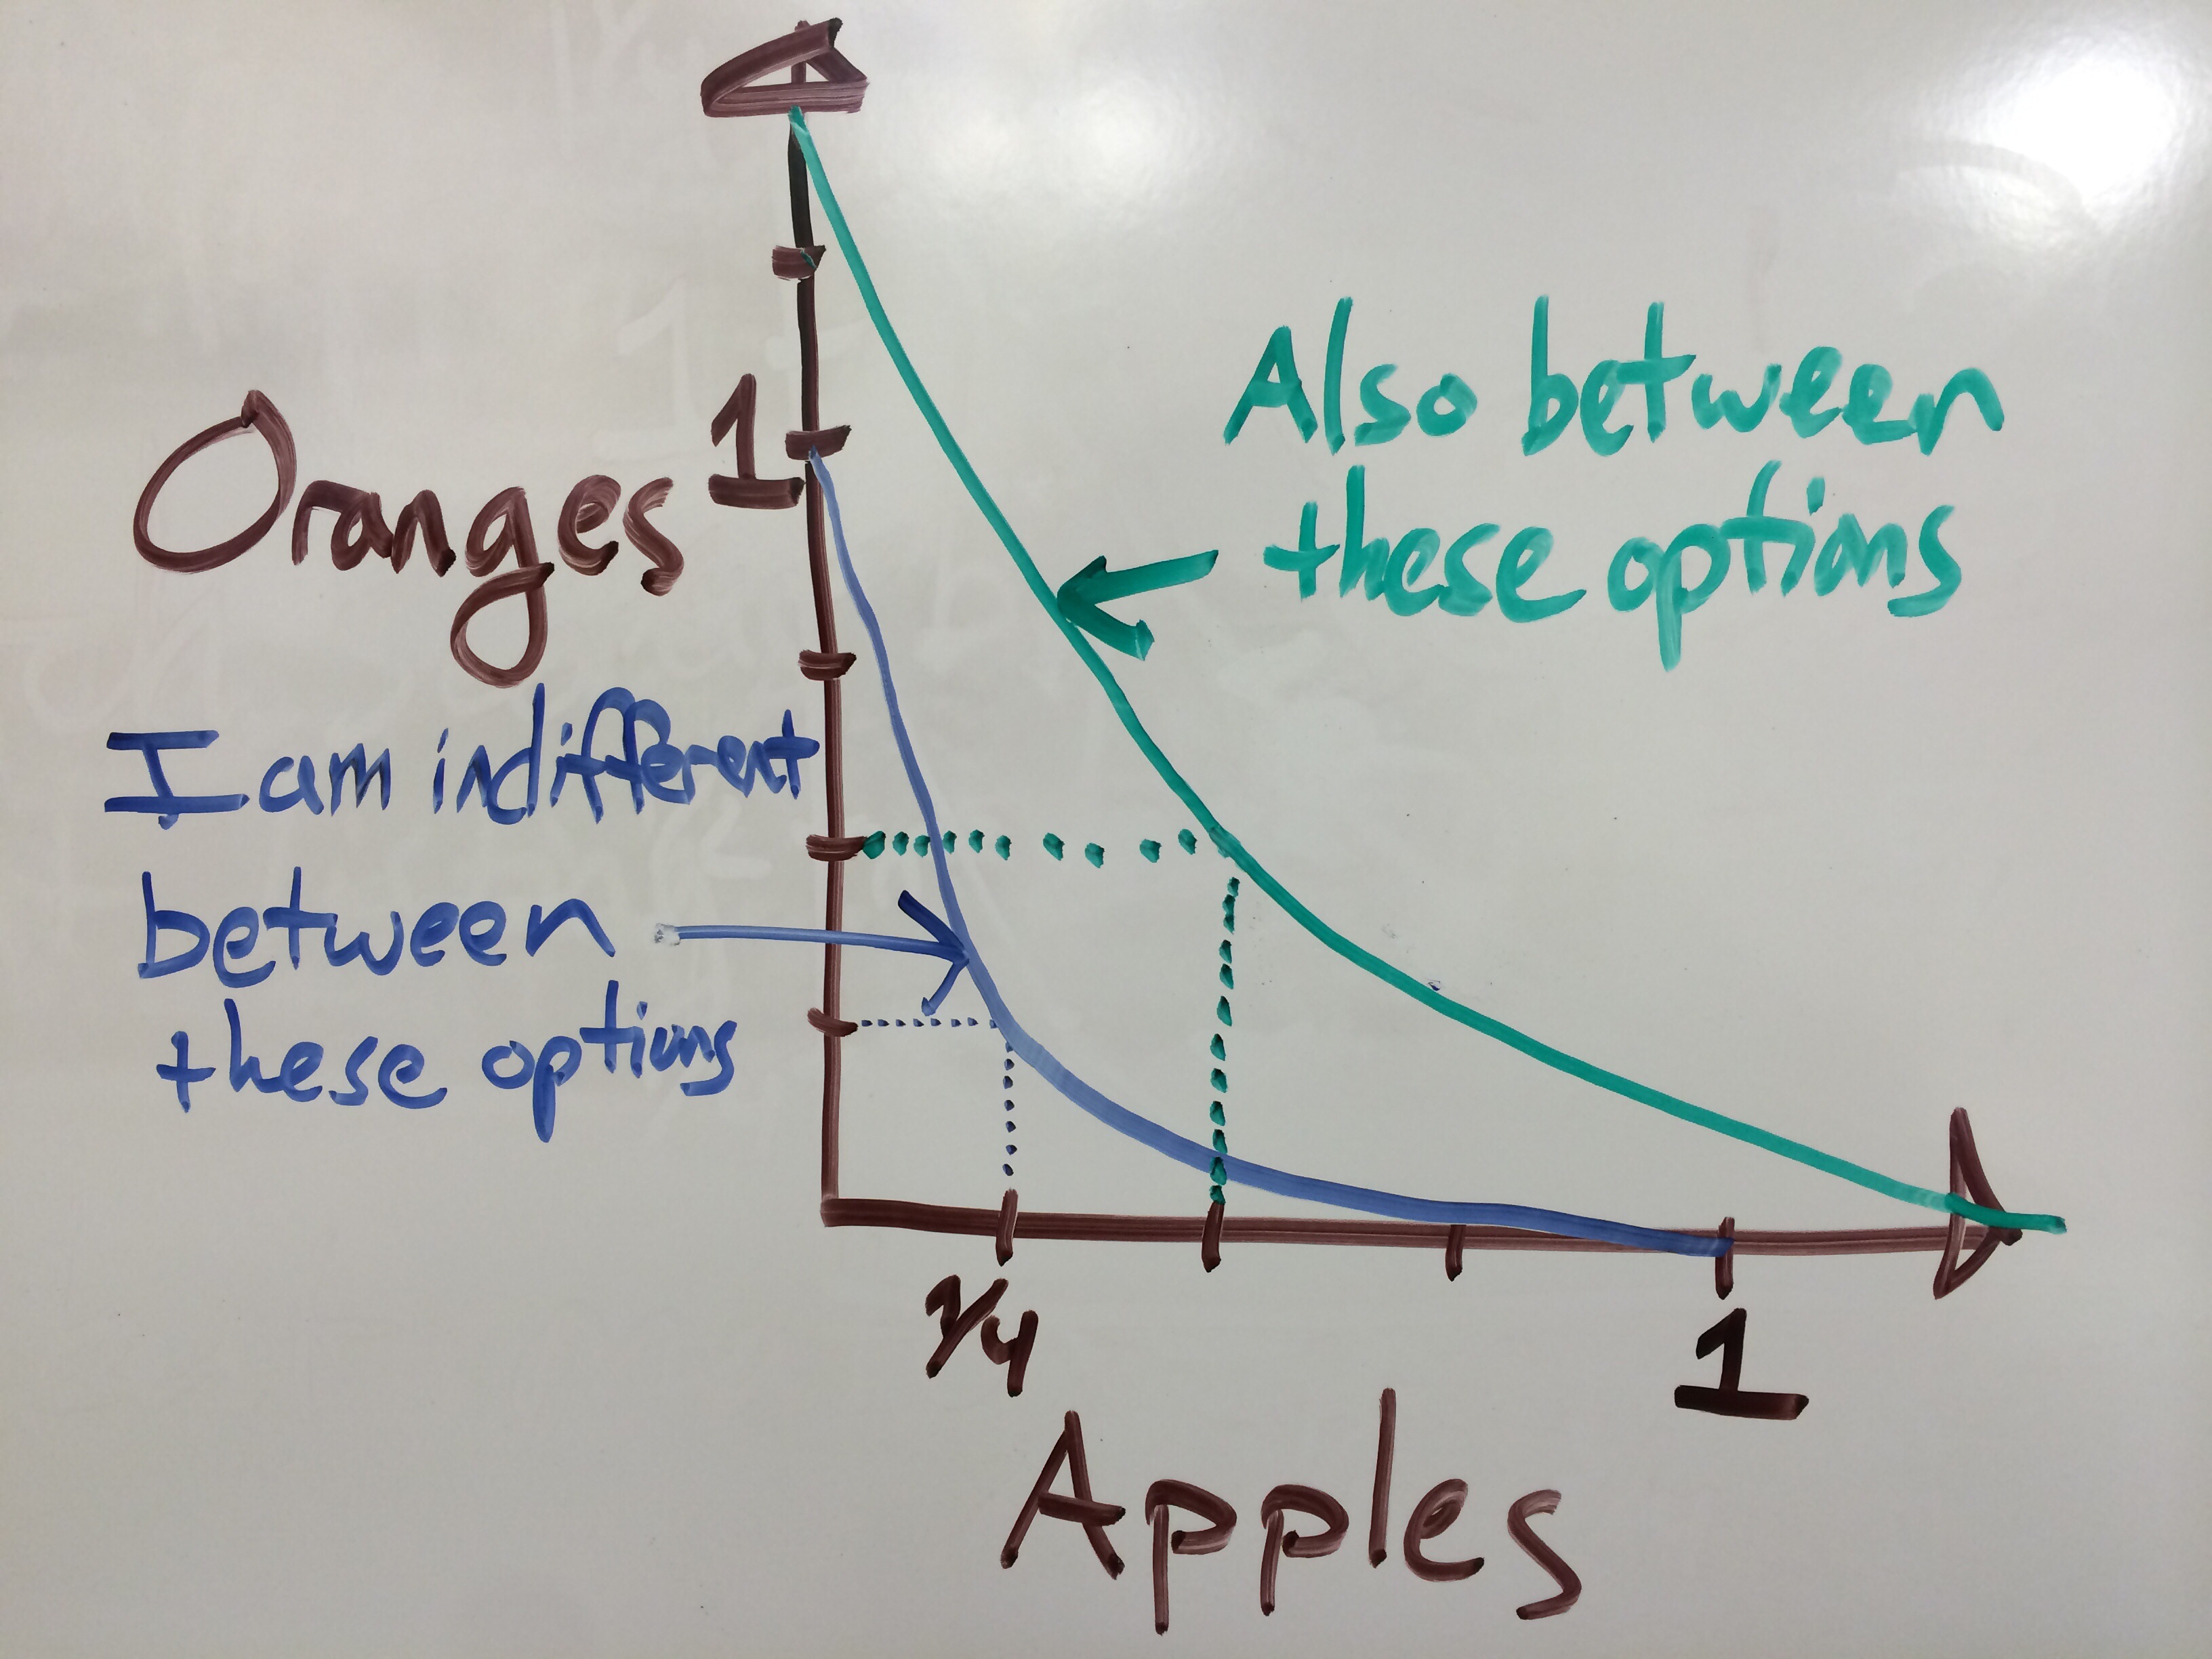 Also between
these options
1
Oranges
I am indifferent
between
these options
1/4
1
Apples